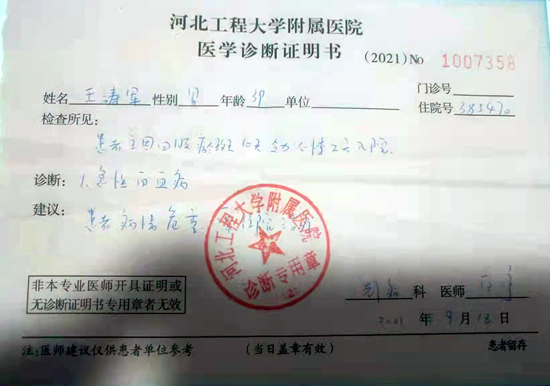 河北工程大学附属医院
医学诊断证明书 (2021)No 1007358
门诊号
姓名 王涛军 性别 男 年龄 39 单位 住院号 383470
检查所见:
患者主因 入院.
诊断: 1.急性白血病
建议: 患者病情危重
河北工程大学附属医院
诊断专用章
(2)
非本专业医师开具证明或
无诊断证明书专用章者无效
科 医师
2021 年 9 月 18 日
注:医师建议仅供患者单位参考 (当日盖章有效) 患者留存